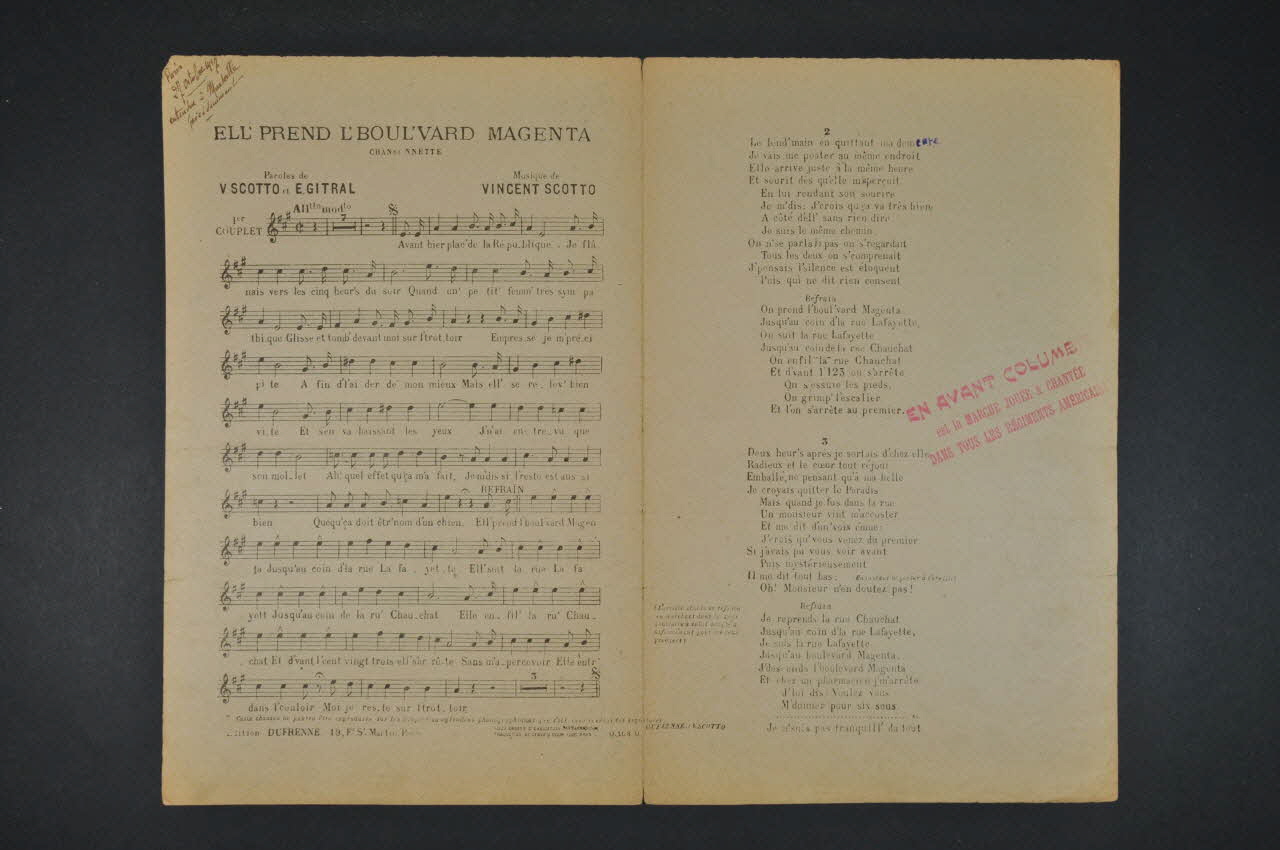 Paris
entendue à
ELL' PREND L'BOUL'VARD MAGENTA
CHANS NNETTE
Paroles de
V SCOTTO et E. GITRAL
Musique de
VINCENT SCOTTO
All^tto mod^to
7
1er COUPLET
Avant hier plac' de la Ré pu_blique _ Je flâ_
nais vers les cinq heur's du soir Quand un' pe tit' femm' très sym pa
thi.que Glisse et tomb' devant moi sur l'trot_toir Empres_se je m'pré_ci
pi te A fin d'l'ai der de mon mieux Mais ell' se re_lèv' bien
vi_te Et s'en va baissant les yeux J'ai en_tre_vu que
son mol_let Ah! quel effet qu'ça m'a fait, Je m'dis si l'reste est aus si
REFRAIN
bien Quequ'ça doit êtr' nom d'un chien. Ell' prend l'boul'vard Magen
ta Jusqu'au coin d'la rue La fa_yet_te Ell' suit la rue La fa
yett' Jusqu'au coin de la ru' Chau_chat Elle en_fil' la ru' Chau_
chat Et d'vant l'cent vingt trois ell' s'ar rê_te Sans m'a_percevoir Elle entr'
3
dans l'couloir Moi je res_te sur l'trot_toir
Edition DUFRENNE. 19, Fg St Martin, Paris
DUFRENNE & V.SCOTTO
2
Le lend'main en quittant ma demeure
Je vais me poster au même endroit
Elle arrive juste à la même heure
Et sourit dès qu'elle m'aperçoit
En lui rendant son sourire
Je m'dis: J'crois qu'ça va très bien
A côté d'ell' sans rien dire
Je suis le même chemin.
On n'se parlait pas on s'regardait
Tous les deux on s'comprenait
J'pensais l'silence est éloquent
Puis qui ne dit rien consent
Refrain
On prend l'boul'vard Magenta
Jusqu'au coin d'la rue Lafayette,
On suit la rue Lafayette
Jusqu'au coin de la rue Chauchat
On enfil' la rue Chauchat
Et d'vant l'123 on s'arrête
On s'essuie les pieds,
On grimp' l'escalier
Et l'on s'arrête au premier.
EN AVANT COLUMB
est la MARCHE JOUÉE & CHANTÉE
DANS TOUS LES RÉGIMENTS AMÉRICAI
3
Deux heur's après je sortais d'chez elle
Radieux et le cœur tout réjoui
Emballé, ne pensant qu'à ma belle
Je croyais quitter le Paradis
Mais quand je fus dans la rue
Un monsieur vint m'accoster
Et me dit d'un' voix émue:
J'crois qu'vous venez du premier
Si j'avais pu vous voir avant
Puis mystérieusement
Il me dit tout bas:
Oh! Monsieur n'en doutez pas!
Refrain
Je reprends la rue Chauchat
Jusqu'au coin d'la rue Lafayette,
Je suis la rue Lafayette
Jusqu'au boulevard Magenta.
J'descends l'boulevard Magenta
Et chez un pharmacien j'm'arrête
J'lui dis: Voulez vous
M'donner pour six sous
Je n'suis pas tranquill' du tout